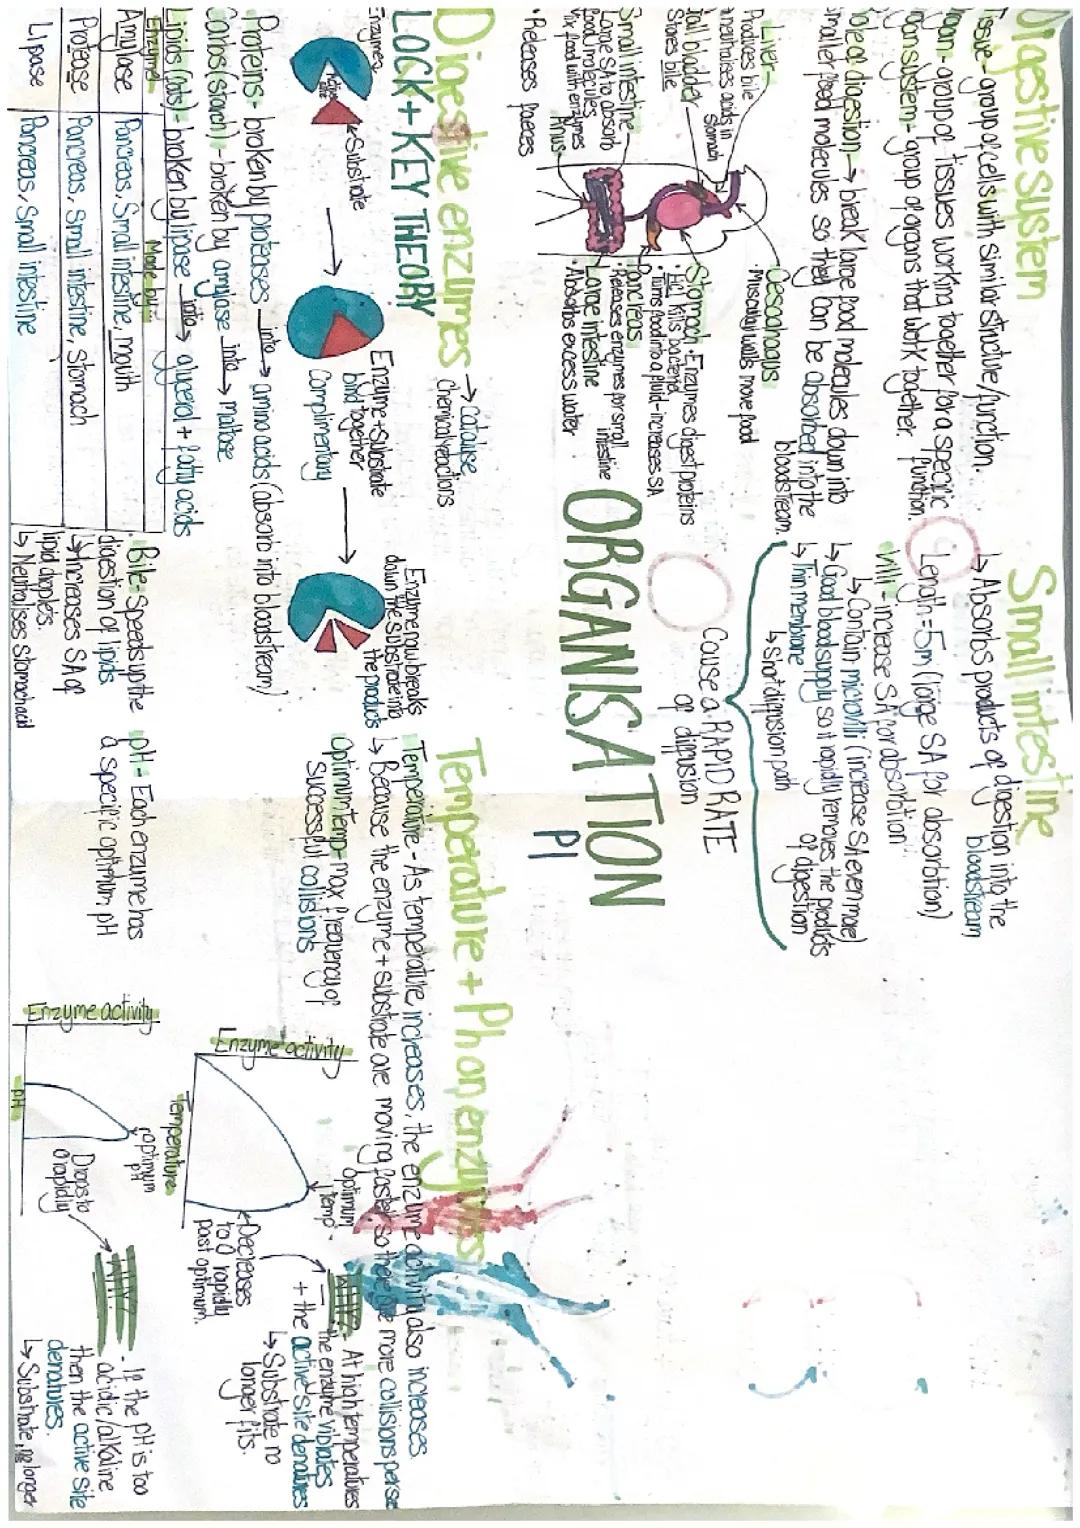 Digestive system
Tissue - group of cells with similar structure/function.
Organ - group of tissues working together for a specific function.
Organ system - group of organs that work together.
Role of digestion → break large food molecules down into
smaller food molecules so they can be absorbed into the
bloodstream.
Liver -
Produces bile
neutralises acids in
stomach
Gall bladder
Stores bile
Small intestine -
Large SA to absorb
food molecules
Mix food with enzymes
Anus -
• Releases faeces
Oesophagus
• Muscular walls move food
Stomach • Enzymes digest proteins
• HCl kills bacteria
• Turns food into a fluid - increases SA
Pancreas
• Releases enzymes for small
intestine
Large intestine
• Absorbs excess water
ORGANISATION
P1
Small intestine
↳ Absorbs products of digestion into the
bloodstream
Length = 5m (large SA for absorbtion)
Villi - increase SA for absorbtion
↳ Contain microvilli (increase SA even more)
↳ Good blood supply so it rapidly removes the products
of digestion
↳ Thin membrane
↳ Short diffusion path
Cause a RAPID RATE
of diffusion
Digestive enzymes → catalyse
chemical reactions
LOCK + KEY THEORY
Enzymes
Active
site
Substrate
Enzyme + Substrate
bind together
Complimentary
Enzyme now breaks
down the substrate into
the products
• Proteins - broken by proteases into→ amino acids (absorb into bloodstream)
Carbs (starch) - broken by amylase into→ maltose
Lipids (fats) - broken by lipase into→ glycerol + fatty acids
Enzyme Made by:
Amylase Pancreas, Small intestine, mouth
Protease Pancreas, Small intestine, stomach
Lipase Pancreas, Small intestine
• Bile - Speeds up the
digestion of lipids.
↳ Increases SA of
lipid droplets.
↳ Neutralises stomach acid
Temperature + Ph on enzymes
Temperature - As temperature increases, the enzyme activity also increases.
↳ Because the enzyme + substrate are moving faster so there are more collisions per sec
Optimum temp - max frequency of
successful collisions
Enzyme activity
Temperature
optimum
temp.
Decreases
to 0 rapidly
past optimum.
WHY? - At high temperatures
the enzyme vibrates
+ the active site denatures
↳ Substrate no
longer fits.
pH - Each enzyme has
a specific optimum pH
Enzyme activity
pH
optimum
pH
Drops to
0 rapidly
WHY? • If the pH is too
acidic/alkaline
then the active site
denatures.
↳ Substrate no longer